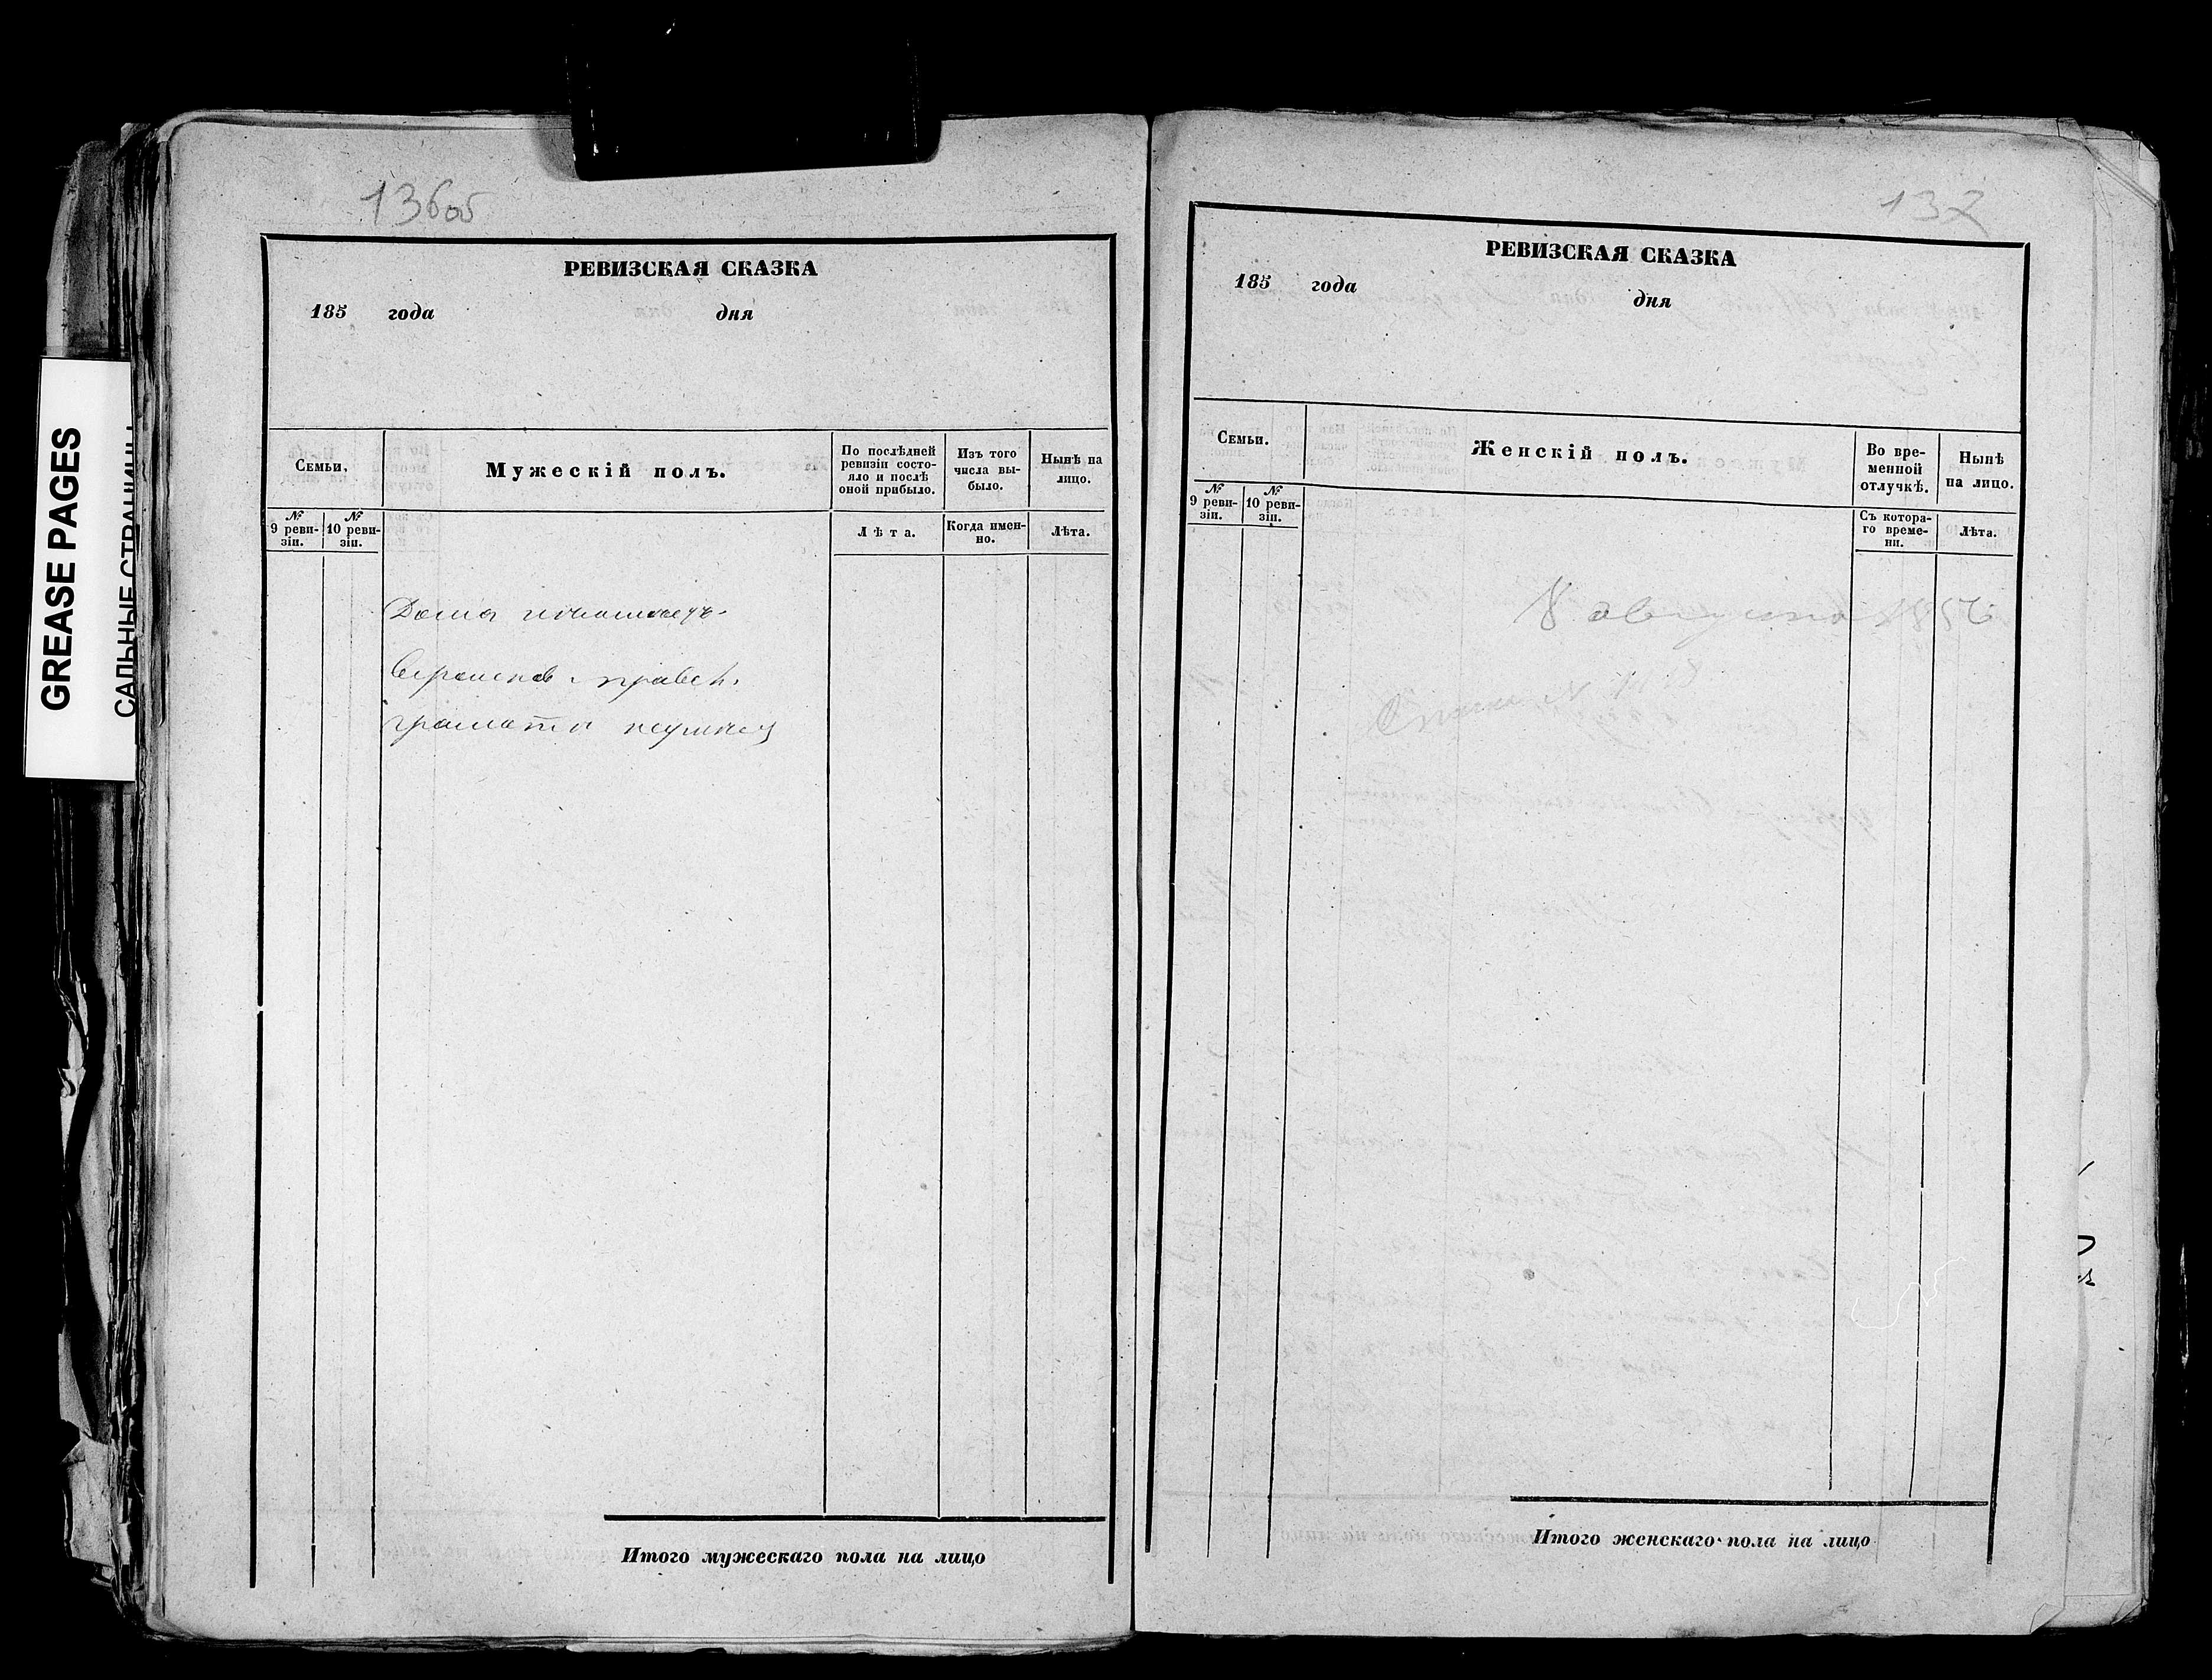 GREASE PAGES
САЛЬНЫЕ СТРАНИЦЫ
136об
РЕВИЗСКАЯ СКАЗКА
185 года дня
Семьи.
Мужескій полъ.
По послѣдней ревизіи состо-
яло и послѣ
оной прибыло.
Изъ того
числа вы-
было.
Нынѣ на
лицо.
№
9 реви-
зіи.
№
10 реви-
зіи.
Лѣта.
Когда имен-
но.
Лѣта.
грамоты
Итого мужескаго пола на лицо
137
РЕВИЗСКАЯ СКАЗКА
185 года дня
Семьи.
Женскій полъ.
Во вре-
менной
отлучкѣ.
Нынѣ
на лицо.
№
9 реви-
зіи.
№
10 реви-
зіи.
Съ котора-
го време-
ни.
Лѣта.
8 августа 1858
Итого женскаго пола на лицо